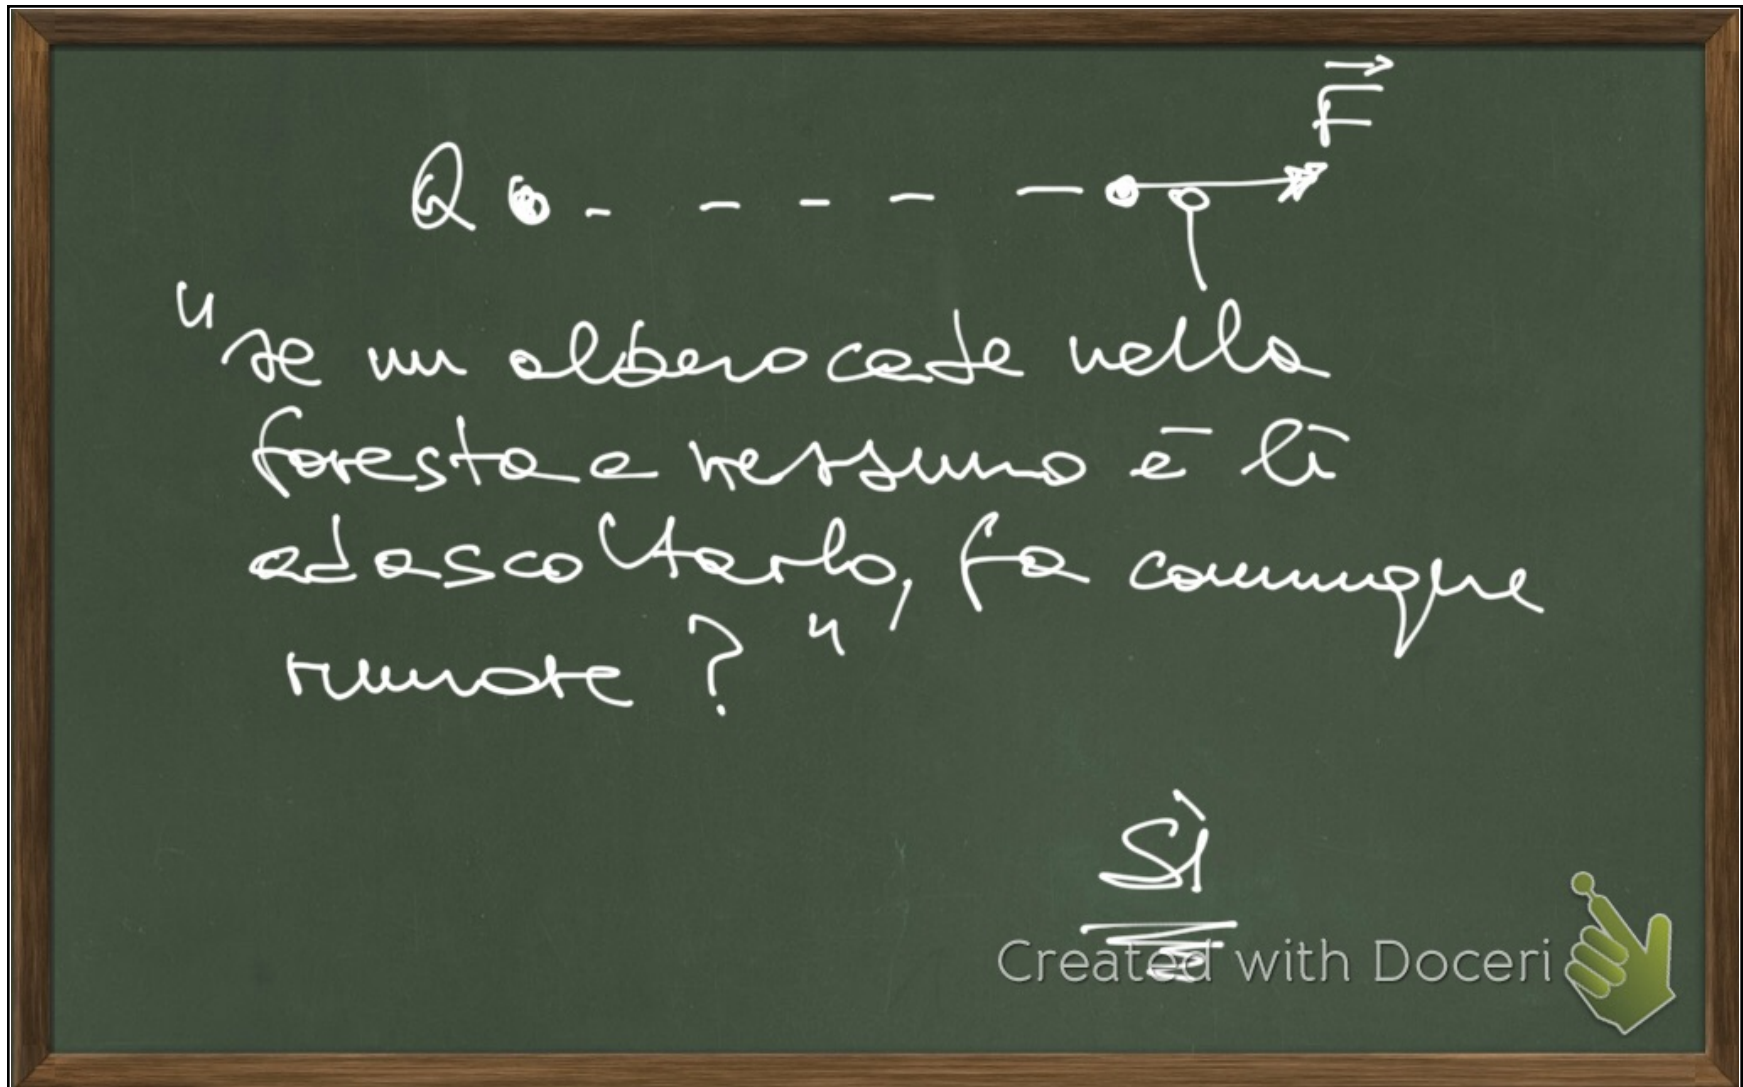 Q q F
"se un albero cade nella
foresta e nessuno è lì
ad ascoltarlo, fa comunque
rumore ? "
SÌ
Created with Doceri